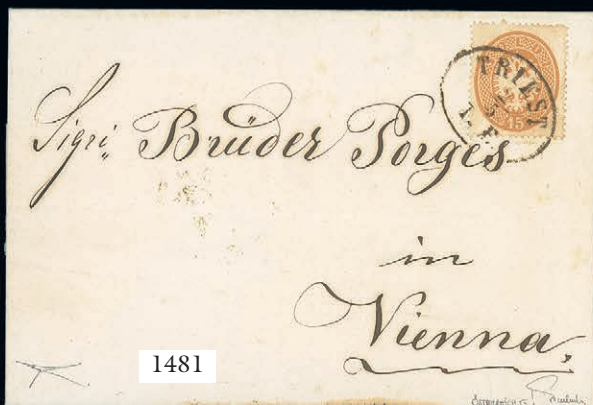 TRIEST
15
Sigri: Brüder Porges
in
Vienna.
1481